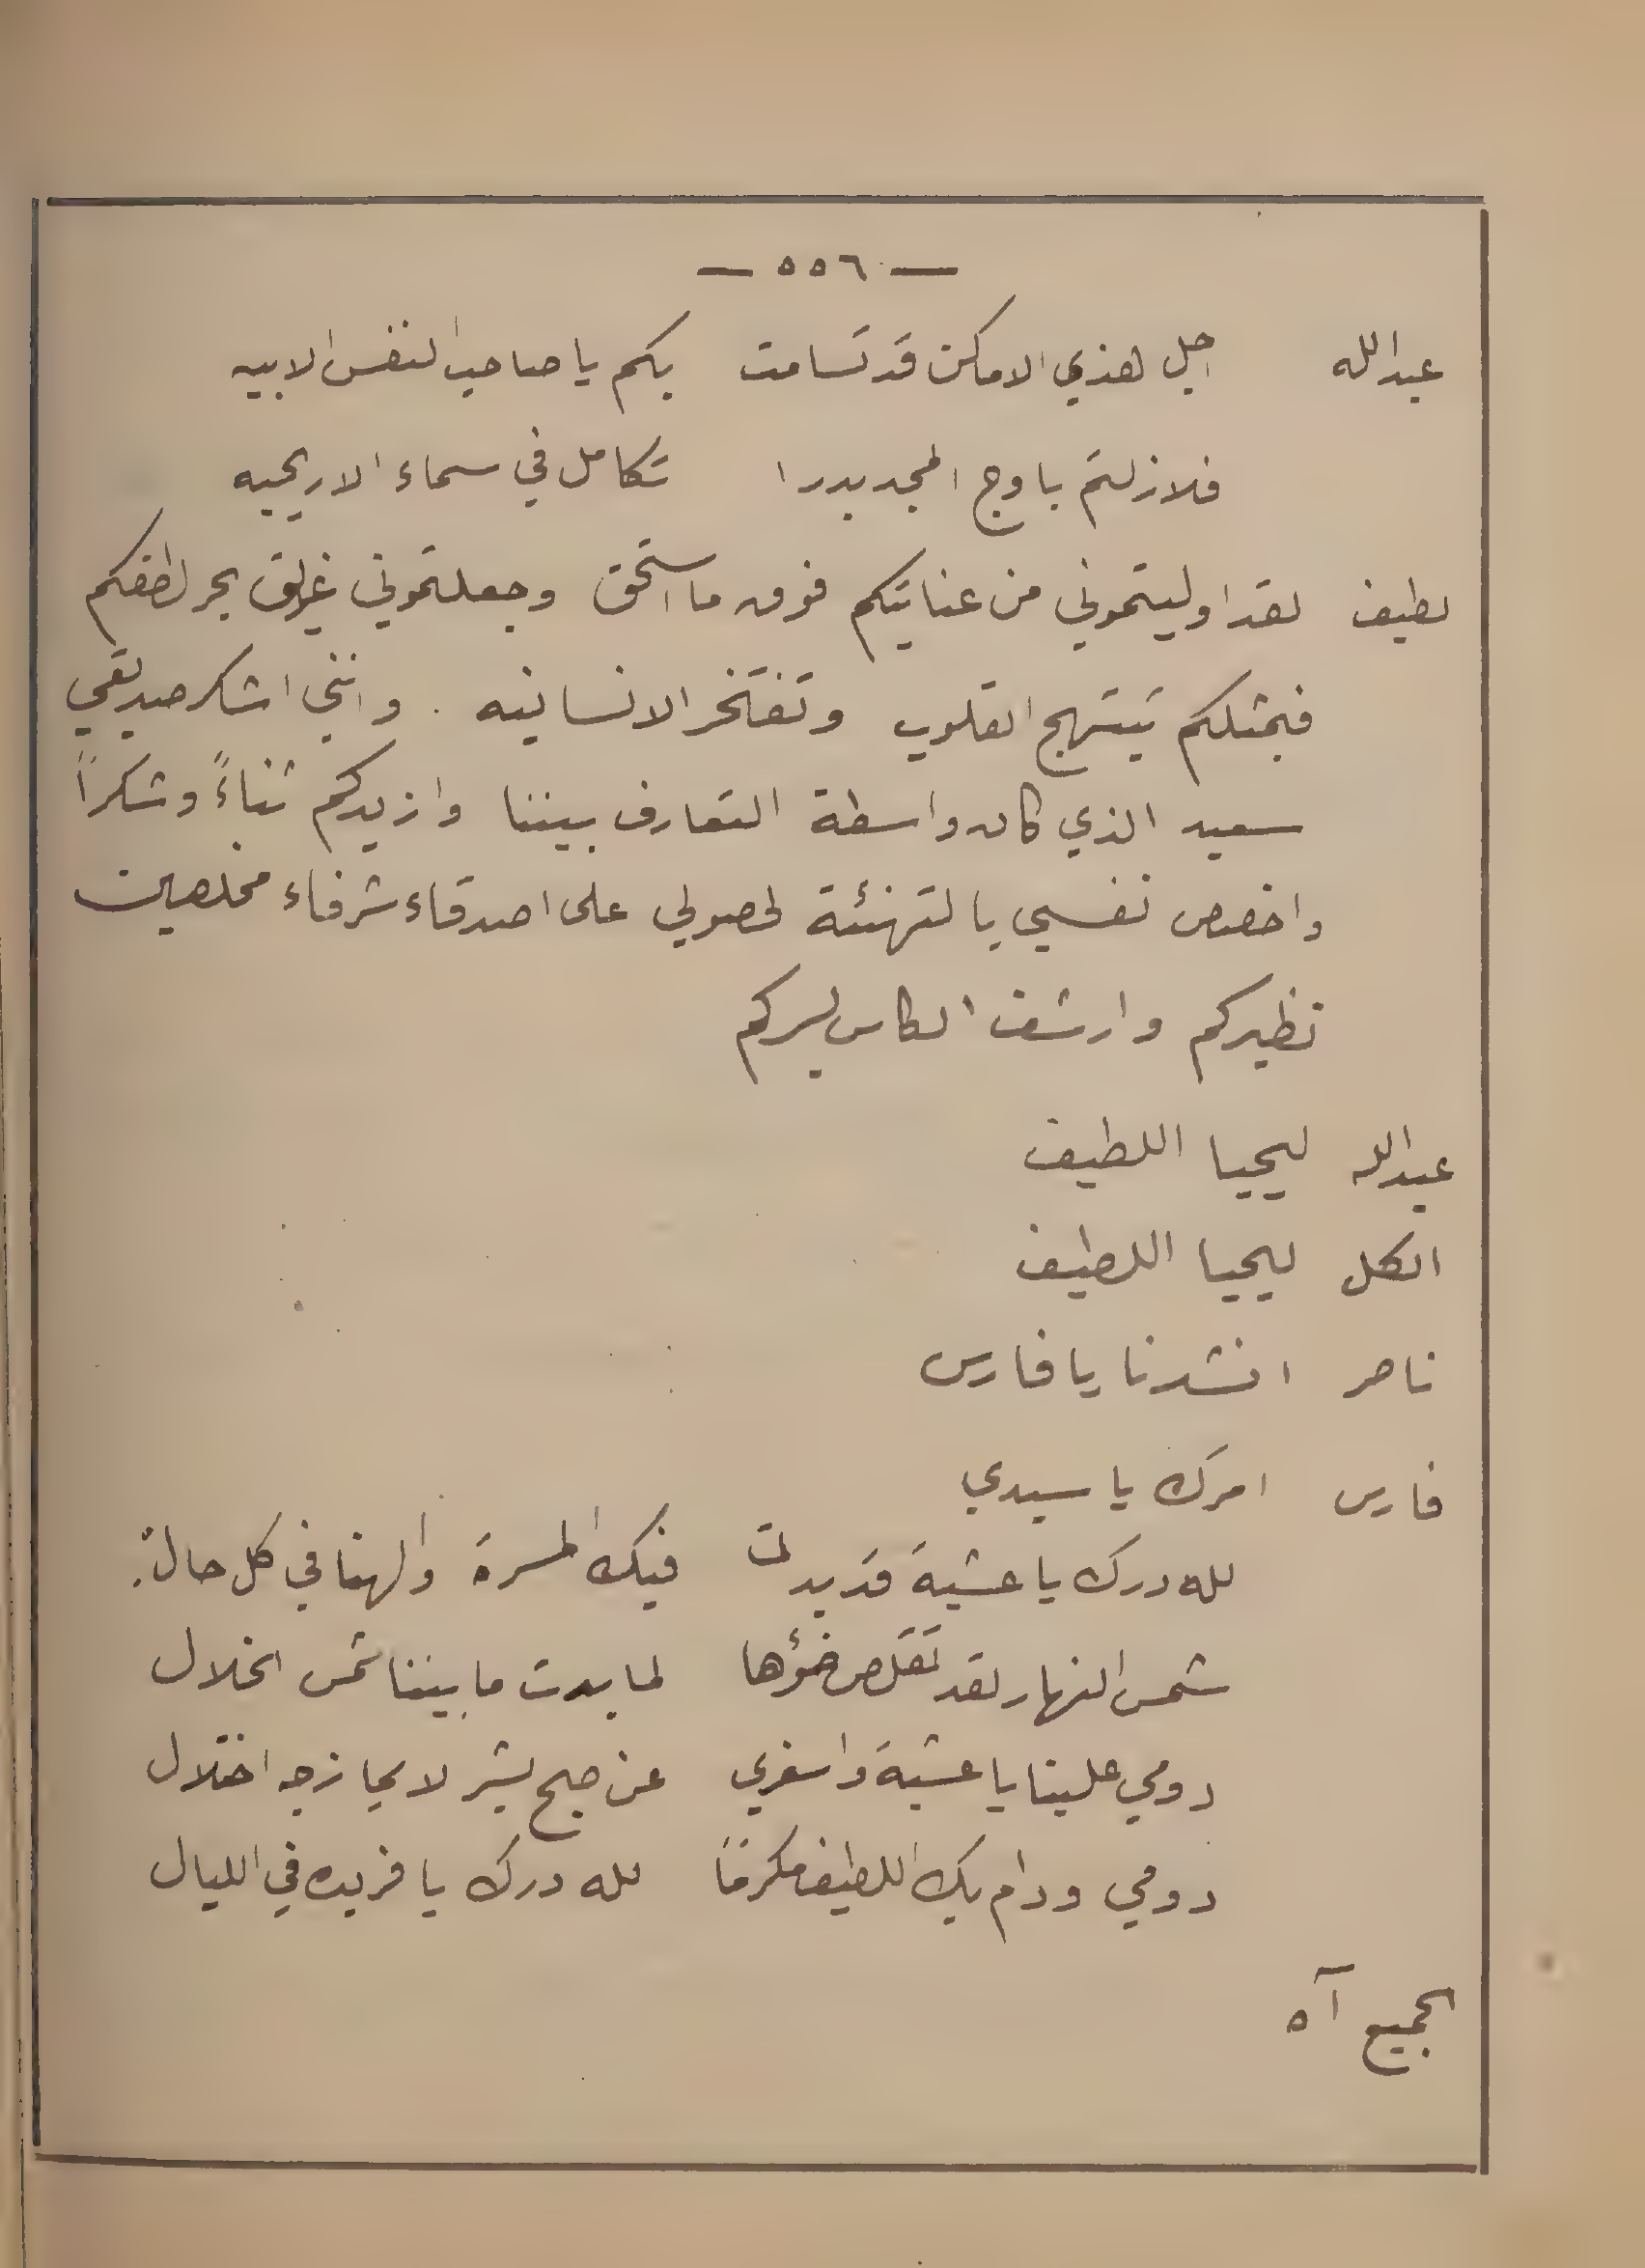 — ٥٥٦ —
عبدالله اجل هذي الاماكن قد تسامت بكم يا صاحب النفس الابيه
فلا زلتم باوج المجد بدرا تكامل في سماء الاريحيه
لطيف لقد اوليتموني من عنايتكم فوق ما استحق وجعلتموني غريق بحر لطفكم
فبمثلكم تبتهج القلوب وتفتخر الانسانيه . وانني اشكر صديقي
سعيد الذي كان واسطة التعارف بيننا وازيدكم ثناءً وشكراً
واخصص نفسي بالتهنئة لحصولي على اصدقاء شرفاء مخلصين
نظيركم وارشف الكاس لسركم
عبدالله ليحيا اللطيف
الكل ليحيا اللطيف
ناصر انشدنا يا فارس
فارس امرك يا سيدي
لله درك يا عشية قد بدت فيك المسرة والهنا في كل حال
شمس النهار لقد تقلص ضؤها لما بدت ما بيننا شمس الخلال
دومي علينا يا عشية واسفري عن صبح بشر لا يمازجه اختلال
دومي ودام بك اللطيف مكرمًا لله درك يا فريده في الليال
الجميع آه